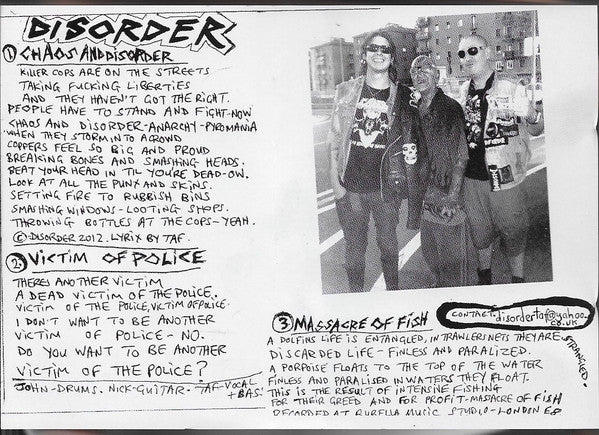 DISORDER
① CHAOS AND DISORDER
KILLER COPS ARE ON THE STREETS
TAKING FUCKING LIBERTIES
AND THEY HAVEN'T GOT THE RIGHT.
PEOPLE HAVE TO STAND AND FIGHT-NOW
CHAOS AND DISORDER-ANARCHY-PYROMANIA
WHEN THEY STORM INTO A CROWD
COPPERS FEEL SO BIG AND PROUD
BREAKING BONES AND SMASHING HEADS.
BEAT YOUR HEAD IN 'TIL YOU'RE DEAD-ON.
LOOK AT ALL THE PUNX AND SKINS.
SETTING FIRE TO RUBBISH BINS
SMASHING WINDOWS-LOOTING SHOPS.
THROWING BOTTLES AT THE COPS-YEAH.
© DISORDER 2012. LYRIX BY TAF.
② VICTIM OF POLICE
THERES ANOTHER VICTIM
A DEAD VICTIM OF THE POLICE.
VICTIM OF THE POLICE, VICTIM OF POLICE.
I DON'T WANT TO BE ANOTHER
VICTIM OF POLICE-NO.
DO YOU WANT TO BE ANOTHER
VICTIM OF THE POLICE?
JOHN-DRUMS. NICK-GUITAR. TAF-VOCAL
+BAS!
CONTACT. disordertaf@yahoo.
co.uk
③ MASSACRE OF FISH
A DOLFINS LIFE IS ENTANGLED, IN TRAWLERS NETS THEY ARE
STRANGLED.
DISCARDED LIFE-FINLESS AND PARALIZED.
A PORPOISE FLOATS TO THE TOP OF THE WATER
FINLESS AND PARALISED IN WATERS THEY FLOAT.
THIS IS THE RESULT OF INTENSIVE FISHING
FOR THEIR GREED AND FOR PROFIT-MASSACRE OF FISH
RECORDED AT MUSIC STUDIO-LONDON